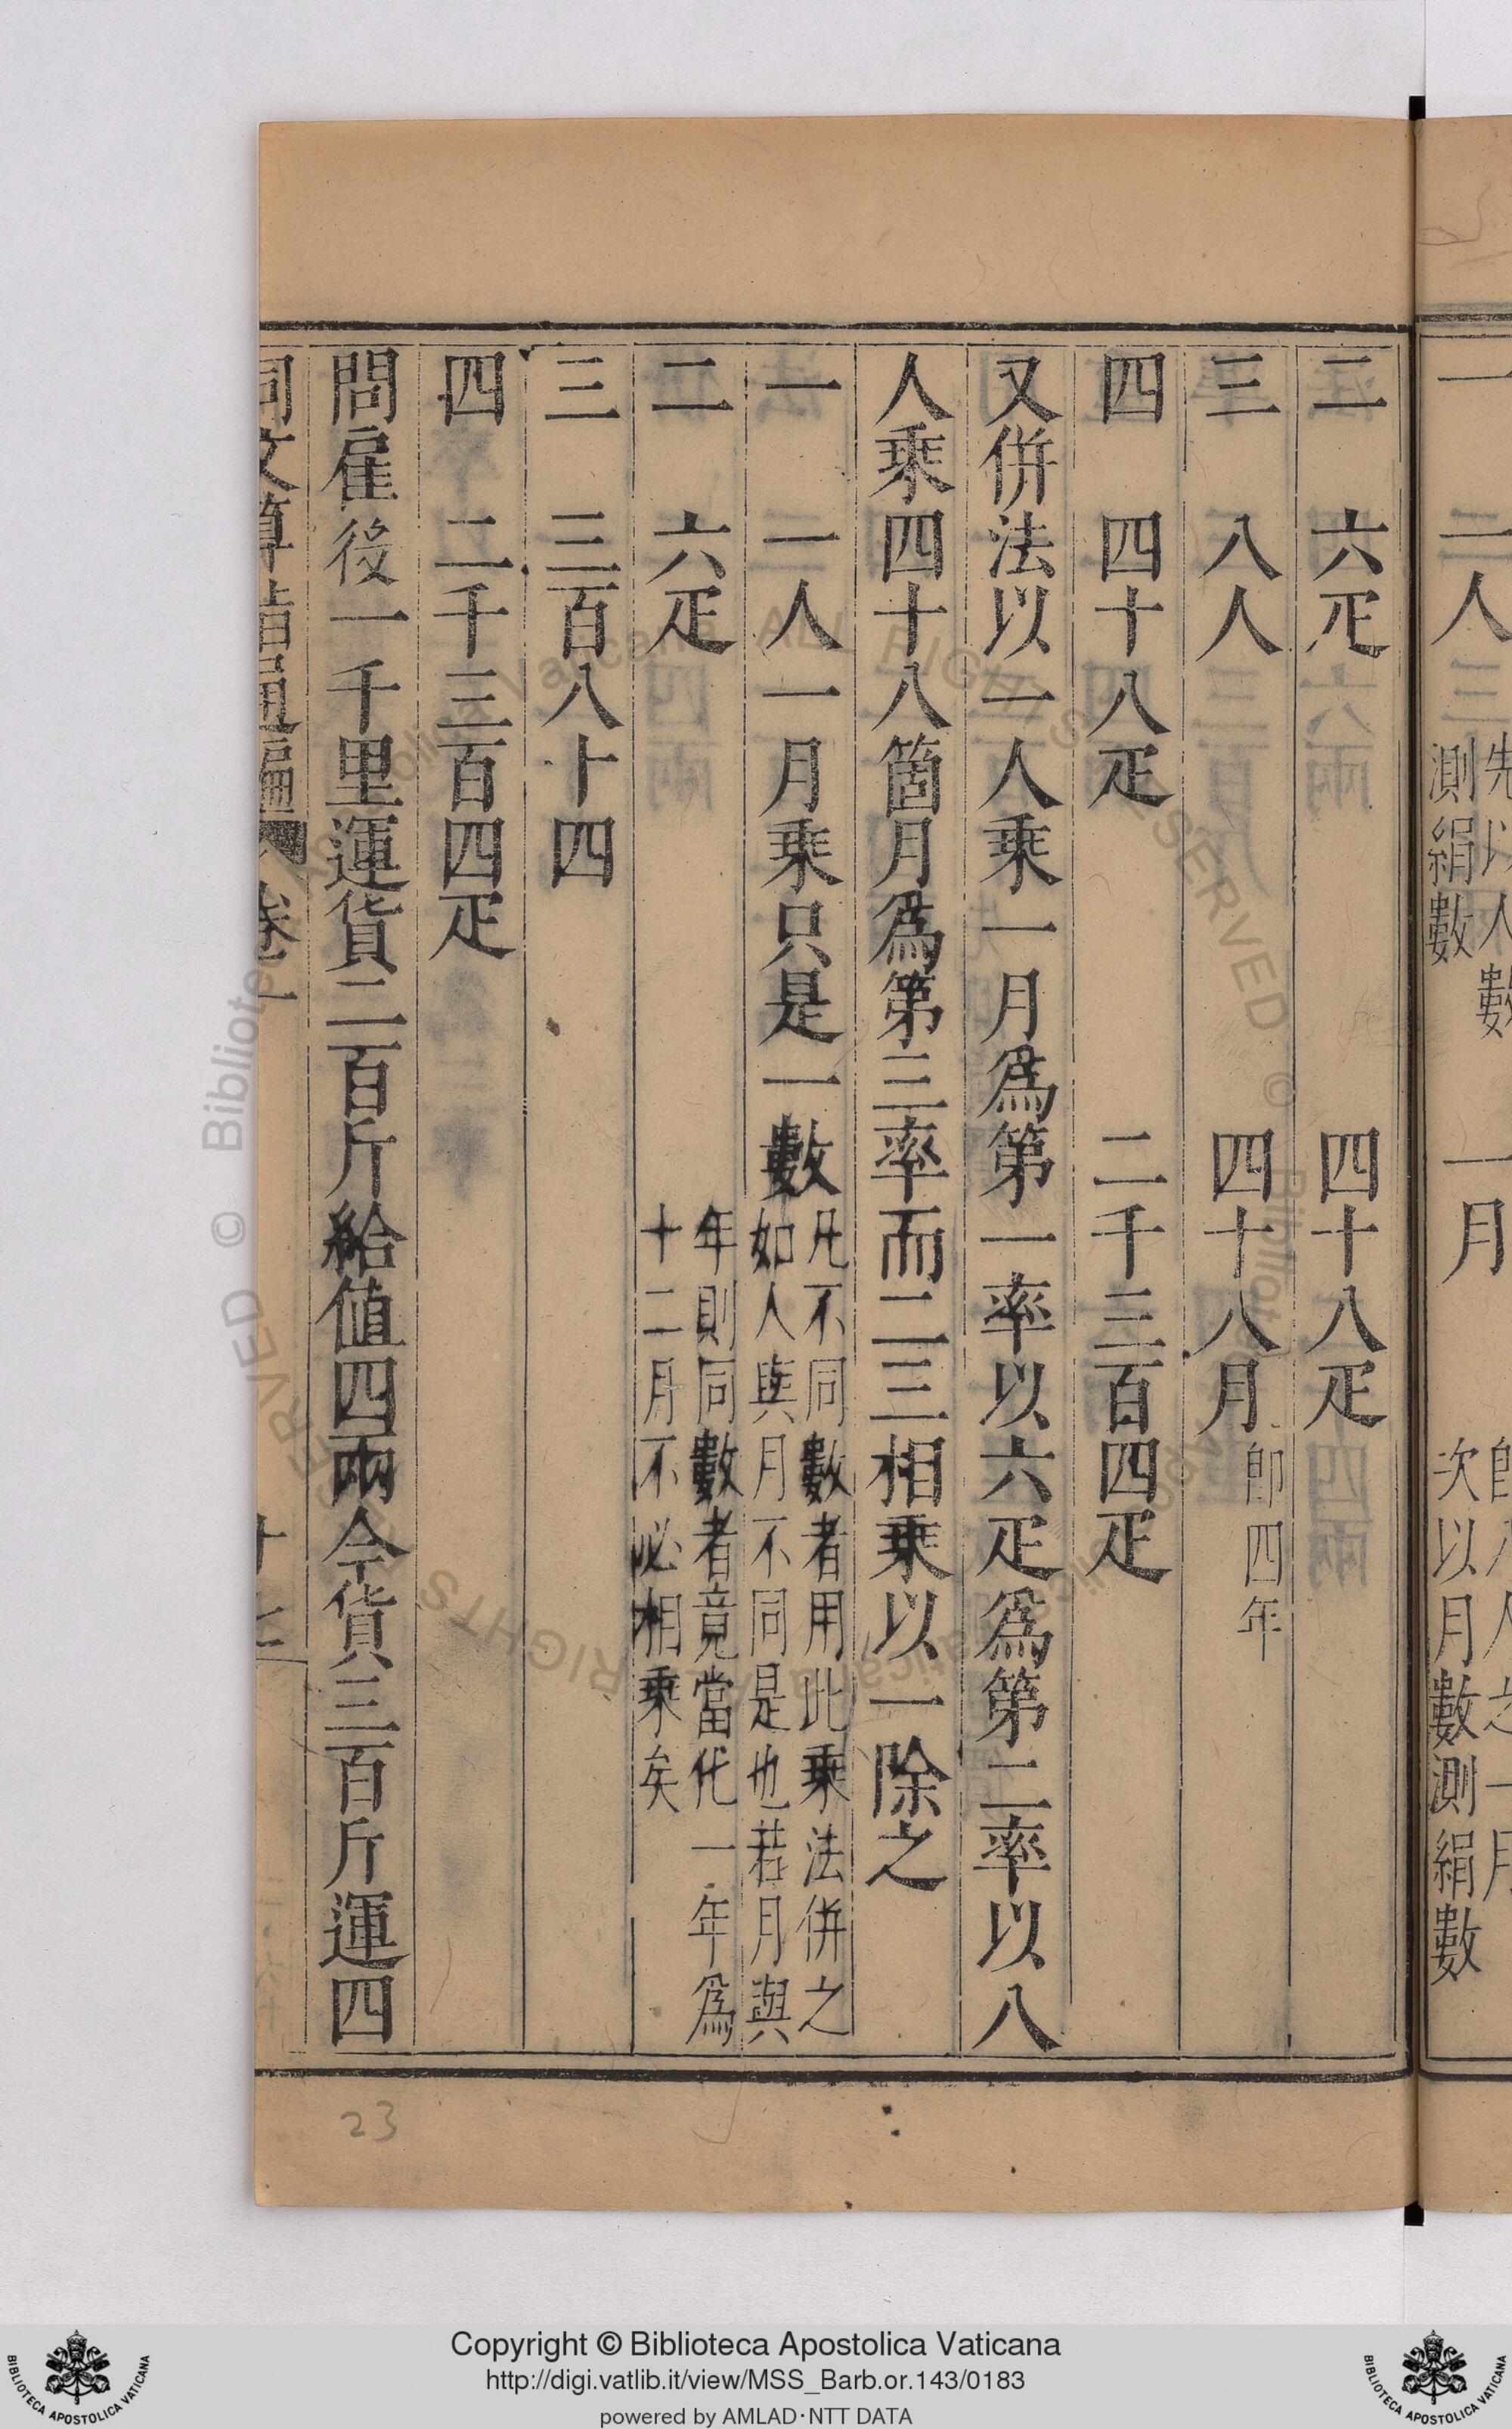 一 一人 先以人數測絹數 一月 次以月數測絹數
二 六疋 四十八疋
三 八人 四十八月 卽四年
四 四十八疋 二千三百四疋
又併法以一人乘一月爲第一率以六疋爲第二率以八
人乘四十八箇月爲第三率而二三相乘以一除之
一 一人一月乘只是一數 凡不同數者用此乘法併之
如人與月不同是也若月與
年則同數者竟當化一年爲
十二月不必相乘矣
二 六疋
三 三百八十四
四 二千三百四疋
問雇役一千里運貨二百斤給値四兩今貨三百斤運四
同文算指通編 卷一 十七
23
Copyright © Biblioteca Apostolica Vaticana
http://digi.vatlib.it/view/MSS_Barb.or.143/0183
powered by AMLAD·NTT DATA
BIBLIOTECA APOSTOLICA VATICANA
BIBLIOTECA APOSTOLICA VATICANA